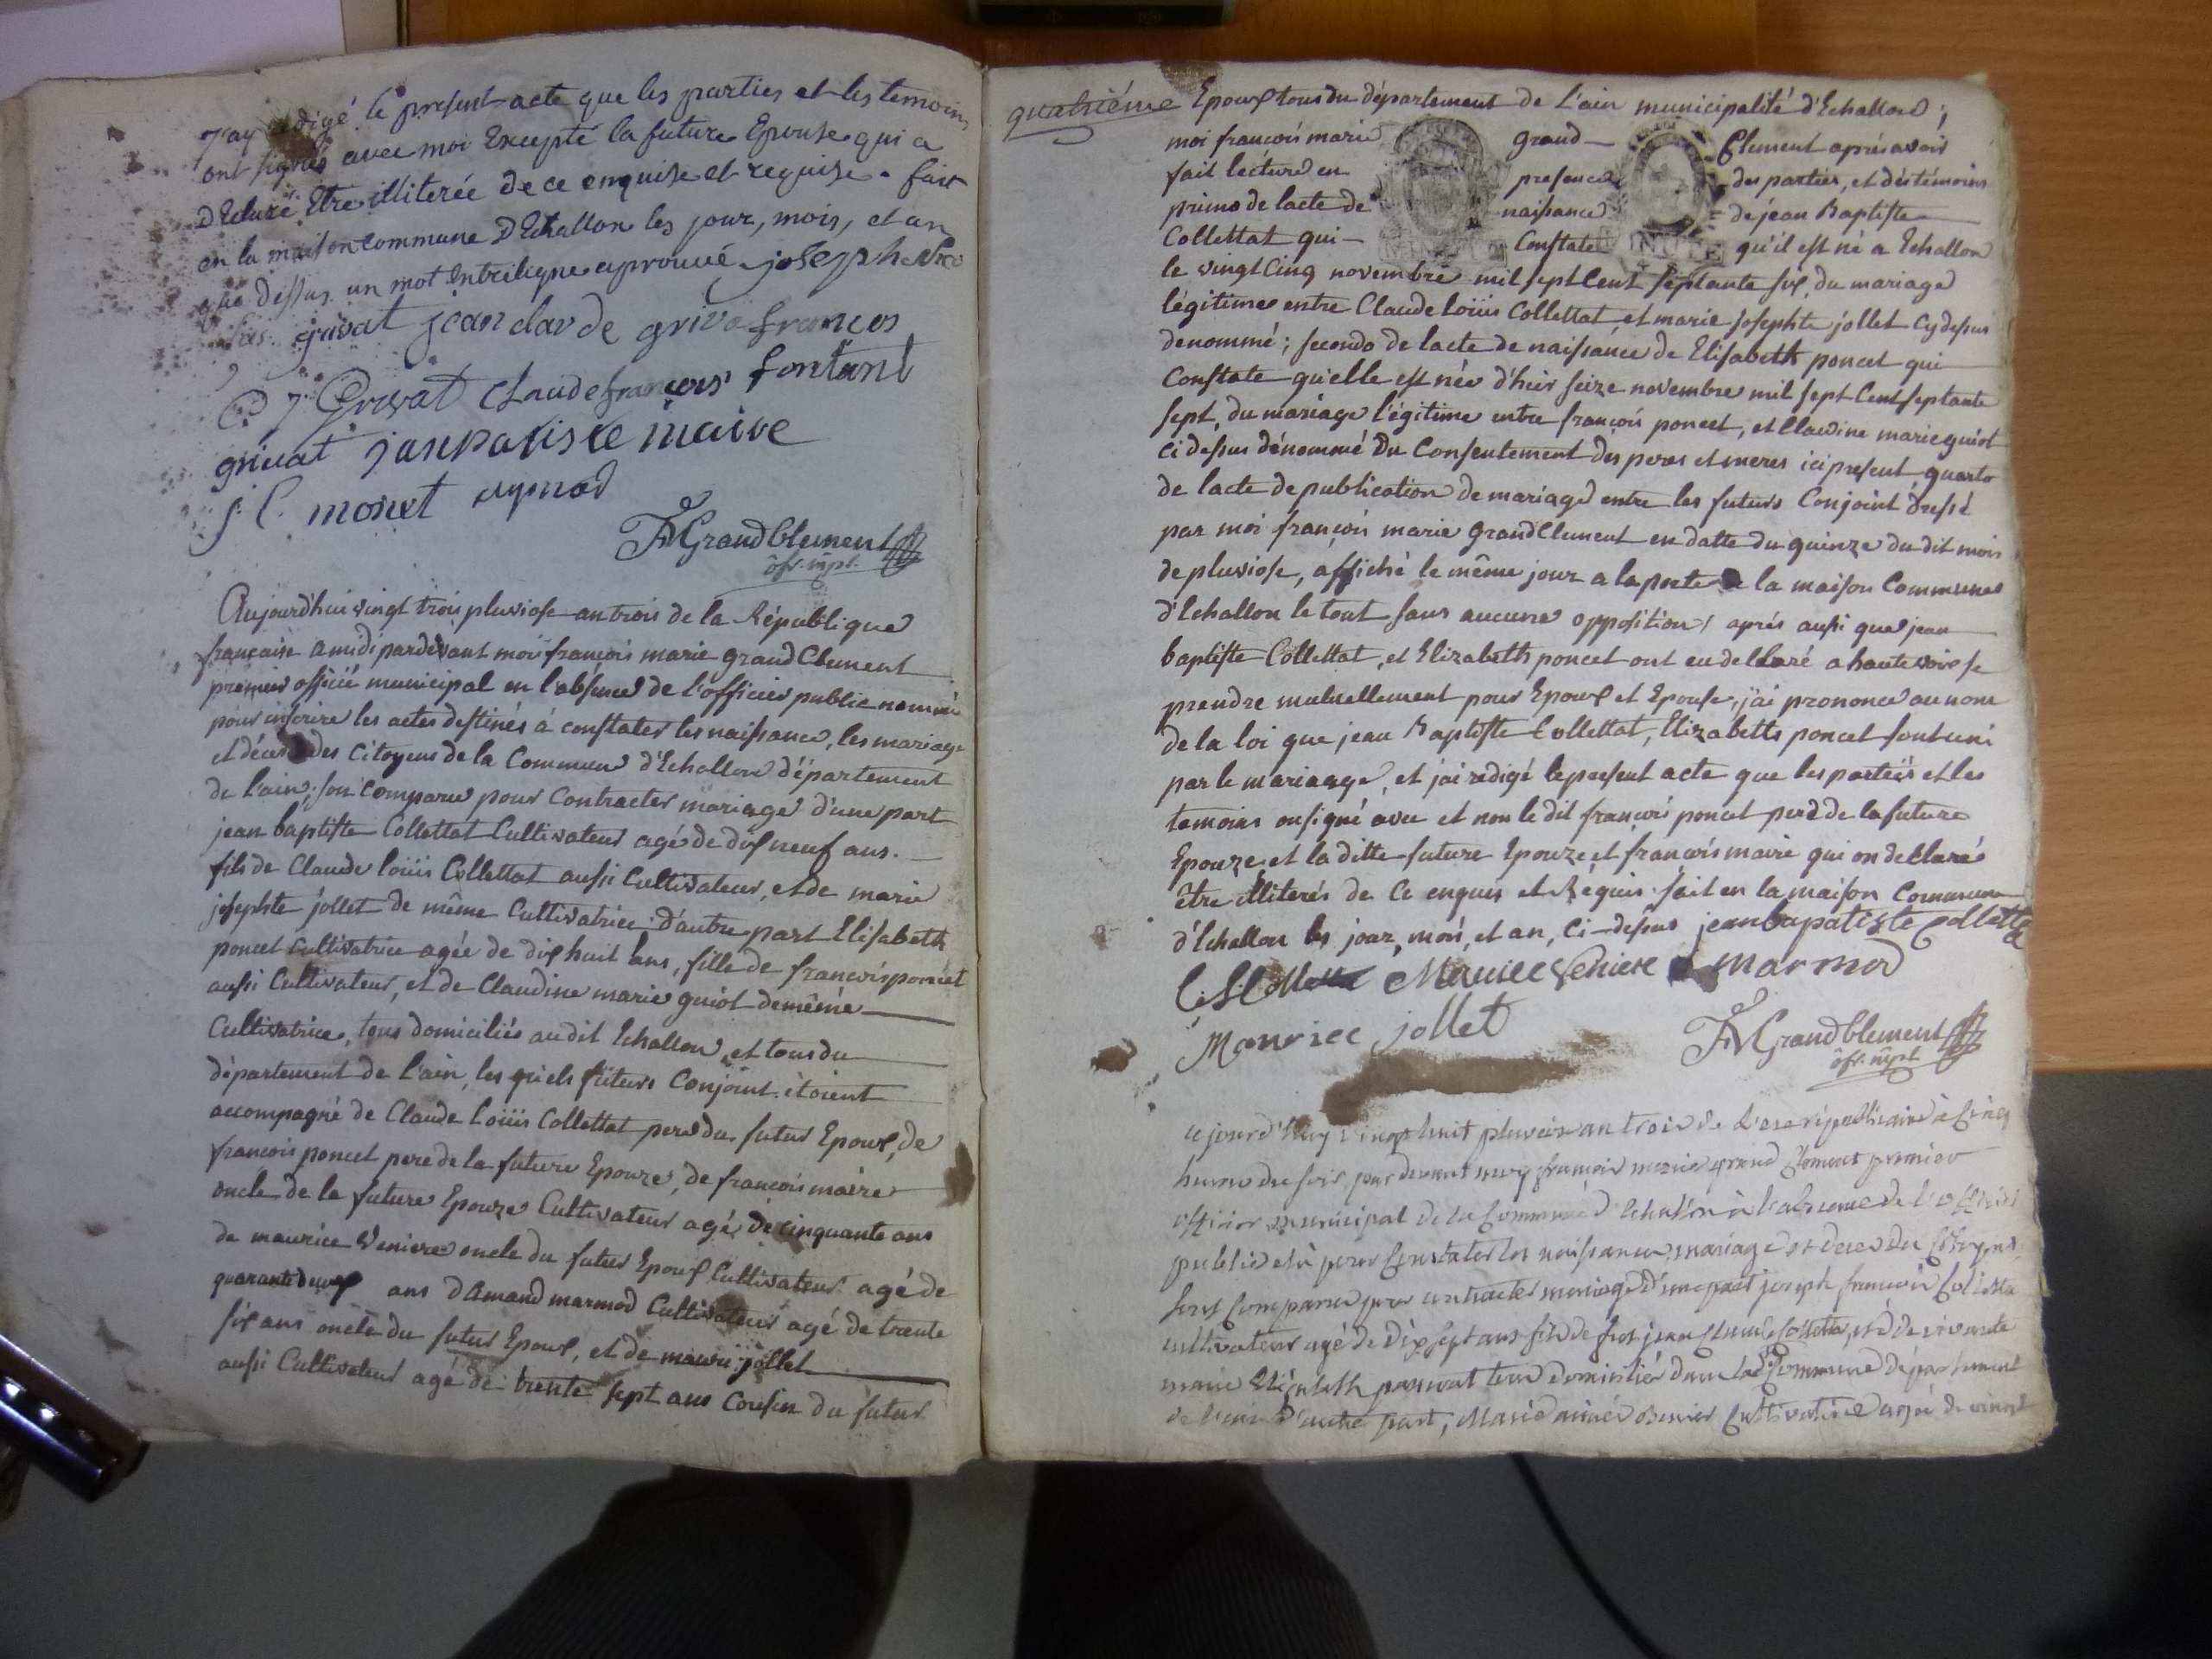 J'ay rédigé le present acte que les parties et les temoins
ont signés avec moi Excepté la future Epouse qui a
déclaré Etre illiterée de ce enquise et requise. fait
en la maison commune D'Echallon les jour, mois, et an
que dessus un mot entreligne aprouvé joseph
grivat jean claude griva francois
C J Grivat Claude francois fontané
grivat jan patiste maire
f. C. monet aymod
FM Grand Clement
ofr. mpl.
Aujourd'hui vingt trois pluviose an trois de la République
française a midi pardevant moi françois marie grand Clement
premier officié municipal en l'absence de l'officier public nommé
pour inscrire les actes destinés à constater les naissance, les mariage
et décés des Citoyens de la Commune d'Echallon département
de l'ain; son comparu pour Contracter mariage d'une part
jean baptiste Collettat Cultivateur agé de dix neuf ans.
fils de Claude loüis Collettat aussi Cultivateur, et de marie
josephte jollet de même Cultivatrice: d'autre part Elisabeth
poncet cultivatrice agée de dix huit ans, fille de francois poncet
aussi Cultivateur, et de Claudine marie guiot de même
Cultivatrice, tous domiciliés au dit Echallon, et tous du
département de l'ain, les quiels futurs Conjoint. étoient
accompagné de Claude Loüis Collettat pere du futur Epoux, de
francois poncet pere de la future Epouze, de francois maire
oncle de la future Epouze Cultivateur agé de cinquante ans
de maurice Veniere oncle du futur Epoux Cultivateur agé de
quarante deux ans d'Amand marmod Cultivateur agé de trente
six ans oncle du futur Epoux, et de mauri jollet
aussi Cultivateur agé de trente sept ans Cousin du futur
quatriéme Epoux tous du département de L'ain municipalité d'Echallon;
moi francois marie grand Clement aprés avoir
fait lécture en presence des parties, et des témoins
primo de lacte de naissance de jean Baptiste
Collettat qui Constate qu'il est né a Echallon
le vingt Cinq novembre mil sept Cent septante six, du mariage
légitime entre Claude loüis Collettat et marie josephte jollet Cy dessus
denommé; secondo de lacte de naissance de Elisabeth poncet qui
Constate qu'elle est née d'heir seize novembre mil sept Cent septante
sept, du mariage l'égitime entre francois poncet, et Claudine marie guiot
ci dessus dénommé Du Consentement des peres et meres ici present, quarto
de lacte de publication de mariage entre les futurs Conjoint dressé
par moi francois marie grand Clement en datte du quinze du dit mois
de pluviose, affiché le même jour a la porte de la maison Commune
d'Echallon le tout sans aucune opposition / aprés aussi que jean
baptiste Collettat, et Elizabeth poncet ont eu declaré a haute voix se
prendre mutuellement pour Epoux et Epouse, j'ai prononcé au nom
de la loi que jean Baptiste Collettat, Elizabeth poncet sont uni
par le mariage, et j'ai rédigé le present acte que les partiës et les
temoins on signé avec et non le dit francois poncet pere de la future
Epouze, et la ditte future Epouze et francois maire qui on declaré
être illiterés de Ce enquis et Réquis. fait en la maison Commune
d'Echallon les jour, mois, et an, Ci-dessus jean bapatiste Colletta
Maurice Veniere marmod
Maurice jollet
FM Grand Clement
ofr. mpl
ce jourd'huy vingt huit pluviose an trois de l'ere républicaine à Cinq
heure du soir, par devant moy francois marie grand Clement premier
officier municipal de la Commune d'Echalon à l'absence de l'officier
public élû pour Constater les naissance, mariage et deces du Citoyens
sont Comparu pour contracter mariage d'une part joseph francois Colletta
cultivateur agé de dix sept ans fils de feu jean Claude Colletta, et de vivante
marie Elizabeth poncet tous domicilié dans la de Commune département
de l'ain D'autre part, Marie Cultivatrice agée de vingt